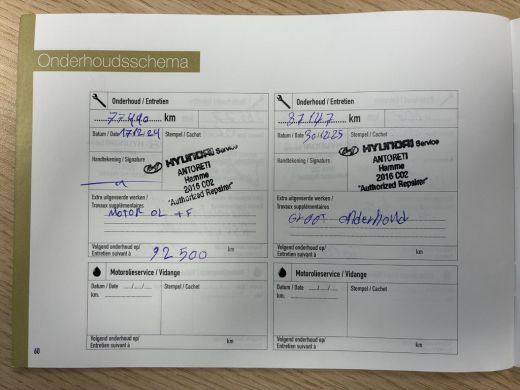 Onderhoudsschema
Onderhoud / Entretien
77440 km
Datum / Date 17.12.24 Stempel / Cachet
HYUNDAI Service
ANTORETI
Hamme
2016 C02
"Authorized Repairer"
Handtekening / Signature
Extra uitgevoerde werken /
Travaux supplémentaires
MOTOR OL +F
Volgend onderhoud op/
Entretien suivant à 92 500 km
Motorolieservice / Vidange
Datum / Date __/__/__ Stempel / Cachet
km.
Volgend onderhoud op/
Entretien suivant à km
Onderhoud / Entretien
87147 km
Datum / Date 30.12.25 Stempel / Cachet
HYUNDAI Service
ANTORETI
Hamme
2016 C02
"Authorized Repairer"
Handtekening / Signature
Extra uitgevoerde werken /
Travaux supplémentaires
GROOT onderhoud
Volgend onderhoud op/
Entretien suivant à km
Motorolieservice / Vidange
Datum / Date __/__/__ Stempel / Cachet
km.
Volgend onderhoud op/
Entretien suivant à km
60